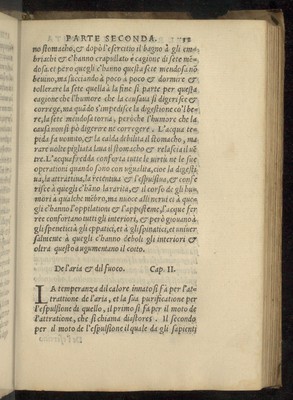 PARTE SECONDA. 52
no stomacho, & dopò l'esercitio il bagno à gli em-
briachi & c'hanno crapullato è cagione di sete men-
dosa. et però quegli c'hanno questa sete mendosa nō
beuino, ma succiando à poco à poco & dormire &
tollerare la sete quella à la fine si parte per questa
cagione che l'humore che la causaua si digerisce &
correge, ma quādo s'impedisce la digestione co'l be-
re, la sete mendosa torna, peròche l'humore che la
causa non si pò digerire ne corregere. L'acqua tepi-
da fa nomito, & la calda debilita il stomacho, ma
rare uolte pigliata laua il stomacho & relascia il uē-
tre. L'acqua fredda conforta tutte le uirtù ne le sue
operationi quando sono con ugualita, cioe la digesti-
ua, la attratiua, la retentiua & l'espulsiua, & confe-
risce à quegli c'hāno la rarità, & il corso de gli hu-
mori à qualche mēbro, ma nuoce alli nerui & à que-
gli c'hanno l'oppilationi & l'appisteme, l'acque fer-
ree confortano tutti gli interiori, & però giouano à
gli spenetici à gli eppatici, et à gli spinatici, et uniuer
salmente à quegli c'hanno deboli gli interiori &
oltra questo augumentano il coito.
De l'aria & dil fuoco. Cap. II.
LA temperanza dil calore innato si fà per l'at-
trattione de l'aria, et la sua purificatione per
l'espulsione di quello, il primo si fà per il moto de
l'attratione, che si chiama diastores. Il secondo
per il moto de l'espulsione il quale da gli sapienti